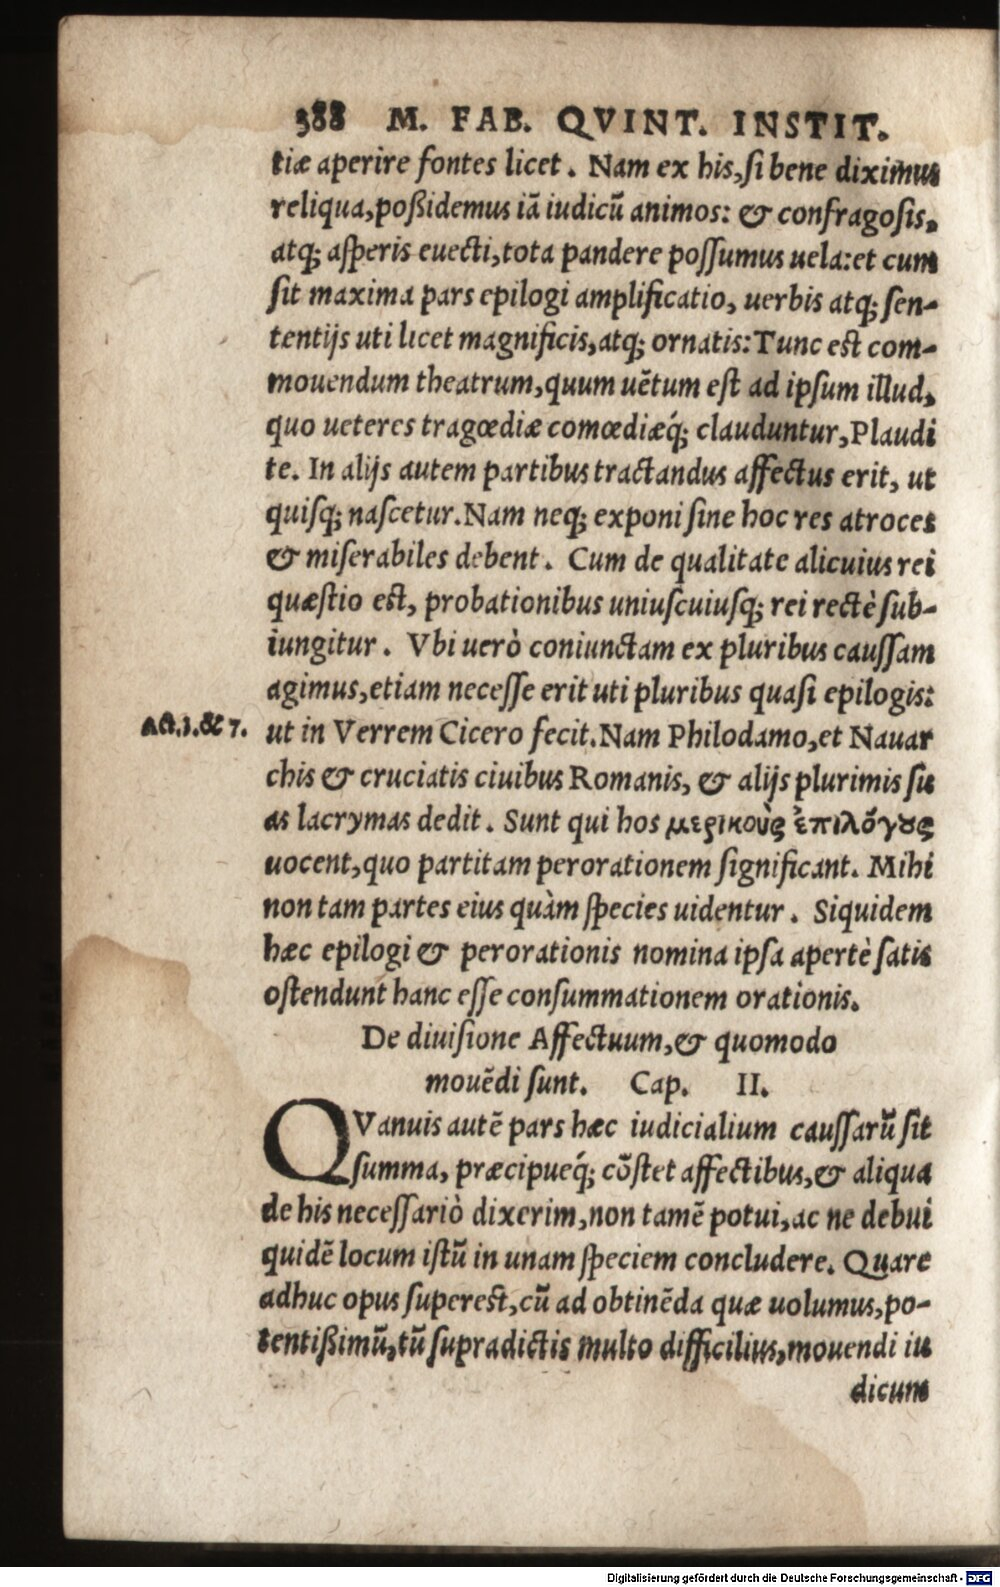 388 M. FAB. QVINT. INSTIT.
tiæ aperire fontes licet. Nam ex his, si bene diximus
reliqua, poßidemus iā iudicū animos: & confragosis,
atq; asperis euecti, tota pandere possumus uela: et cum
sit maxima pars epilogi amplificatio, uerbis atq; sen-
tentijs uti licet magnificis, atq; ornatis: Tunc est com-
mouendum theatrum, quum uētum est ad ipsum illud,
quo ueteres tragœdiæ comœdiæq́; clauduntur, Plaudi
te. In alijs autem partibus tractandus affectus erit, ut
quisq; nascetur. Nam neq; exponi sine hoc res atroces
& miserabiles debent. Cum de qualitate alicuius rei
quæstio est, probationibus uniuscuiusq; rei rectè sub-
iungitur. Vbi uerò coniunctam ex pluribus caussam
agimus, etiam necesse erit uti pluribus quasi epilogis:
Act.1.& 7. ut in Verrem Cicero fecit. Nam Philodamo, et Nauar
chis & cruciatis ciuibus Romanis, & alijs plurimis su
as lacrymas dedit. Sunt qui hos μερικοὺς ἐπιλόγους
uocent, quo partitam perorationem significant. Mihi
non tam partes eius quàm species uidentur. Siquidem
hæc epilogi & perorationis nomina ipsa apertè satis
ostendunt hanc esse consummationem orationis.
De diuisione Affectuum, & quomodo
mouēdi sunt. Cap. II.
QVanuis autē pars hæc iudicialium caussarū sit
summa, præcipueq́; cōstet affectibus, & aliqua
de his necessariò dixerim, non tamē potui, ac ne debui
quidē locum istū in unam speciem concludere. Quare
adhuc opus superest, cū ad obtinēda quæ uolumus, po-
tentißimū, tū supradictis multo difficilius, mouendi iu
dicum
Digitalisierung gefördert durch die Deutsche Forschungsgemeinschaft - DFG